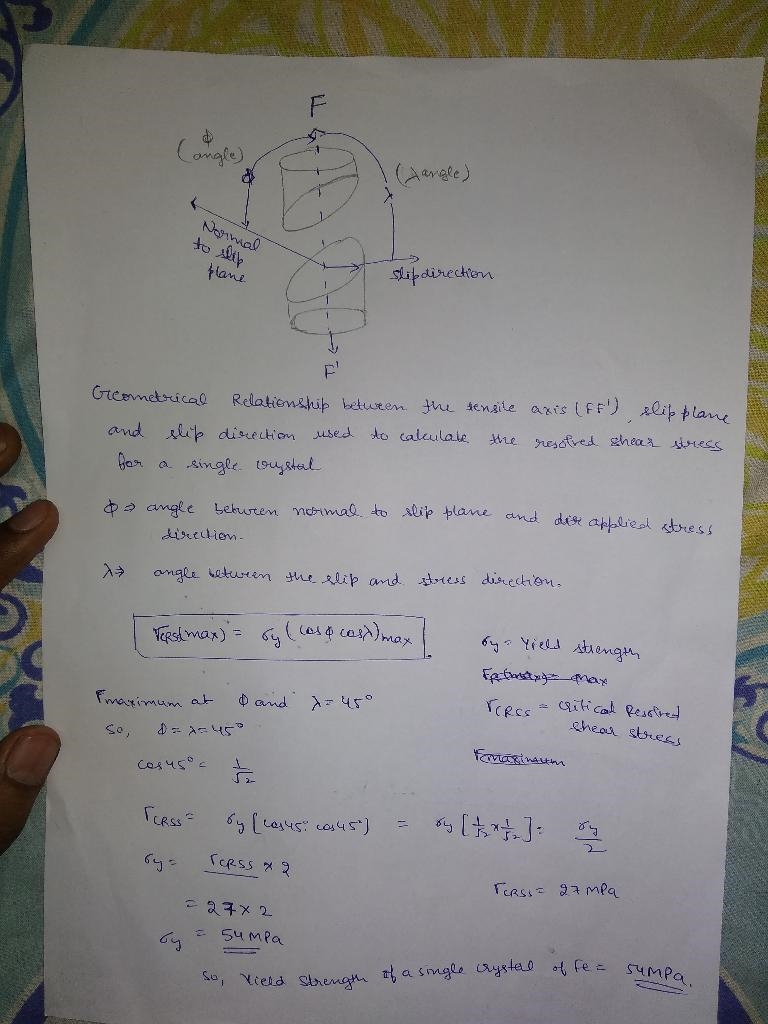 F
(ϕ angle)
(λ angle)
ϕ
λ
Normal
to slip
plane
slip direction
F'
Geometrical Relationship between the tensile axis (FF'), slip plane
and slip direction used to calculate the resolved shear stress
for a single crystal
ϕ ⇒ angle between normal to slip plane and applied stress
direction.
λ ⇒ angle between the slip and stress direction.
τCRSS(max) = σy (cosϕ cosλ)max
σy = Yield strength
τCRSS = Critical Resolved
shear stress
maximum at ϕ and λ = 45°
so, ϕ = λ = 45°
cos45° = 1/√2
τCRSS = σy [cos45° cos45°] = σy [1/√2 × 1/√2] = σy/2
σy = τCRSS × 2
τCRSS = 27 MPa
= 27 × 2
σy = 54 MPa
so, Yield strength of a single crystal of Fe = 54 MPa.